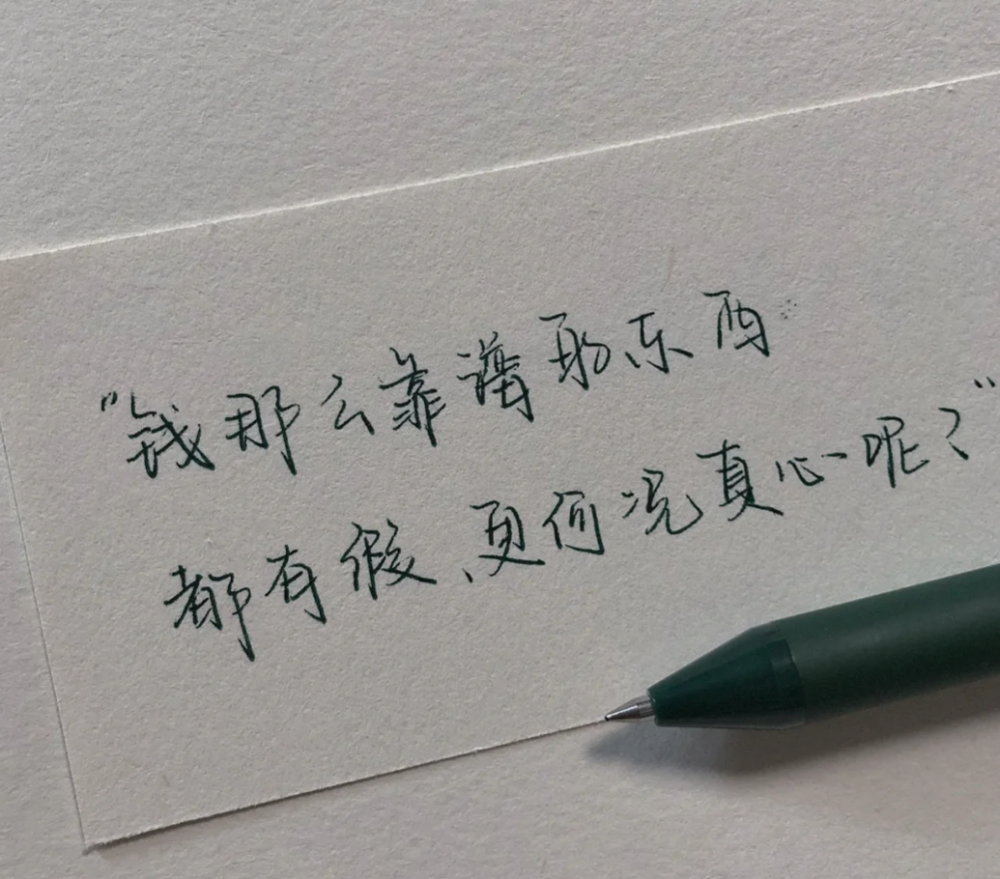 “钱那么靠谱的东西
都有假、更何况真心呢？”